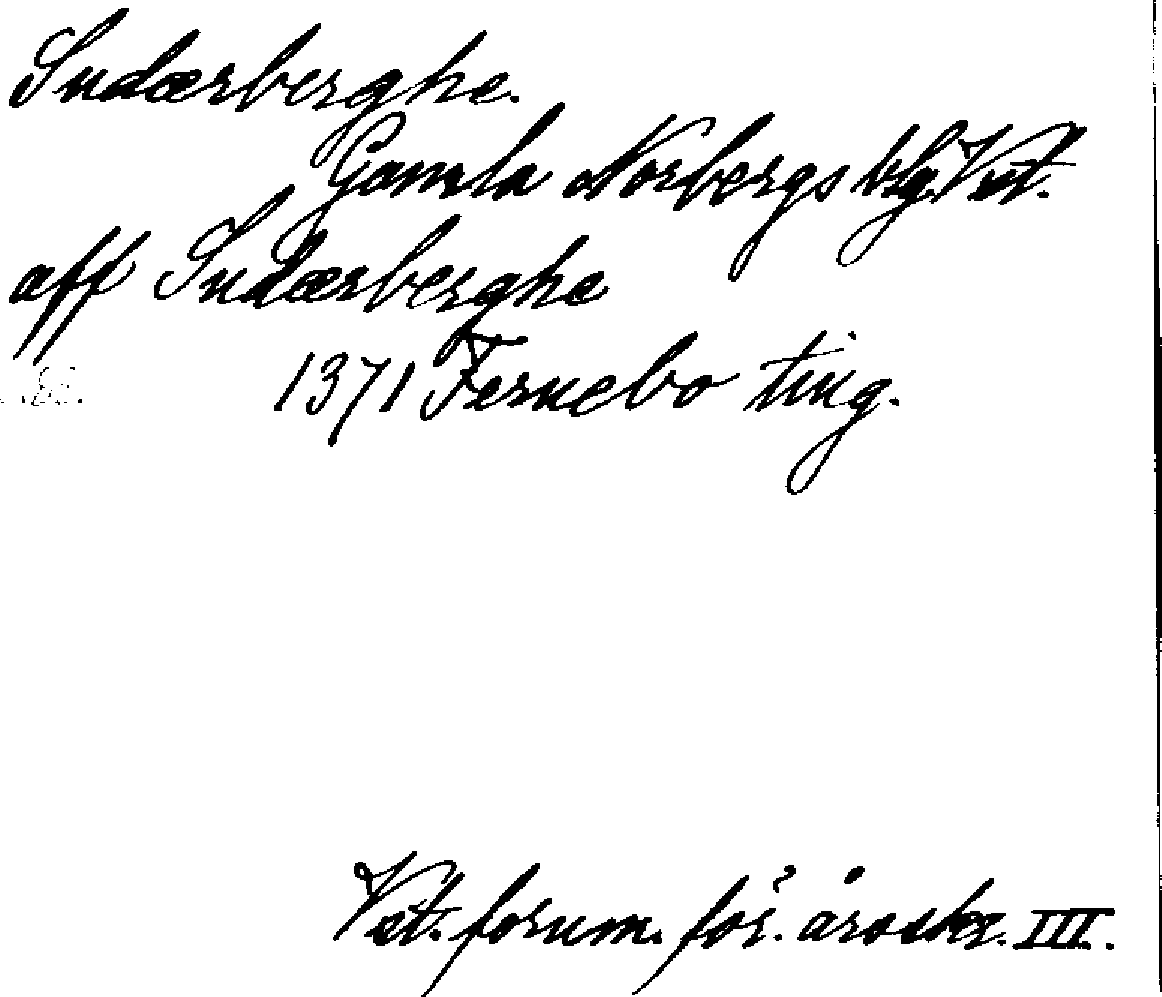 Sudærberghe.
Gamla Norbergs blg. Vst.
aff Sudærberghe
1371 Fernebo ting.
Vst. fornm. för. årsskr. III.